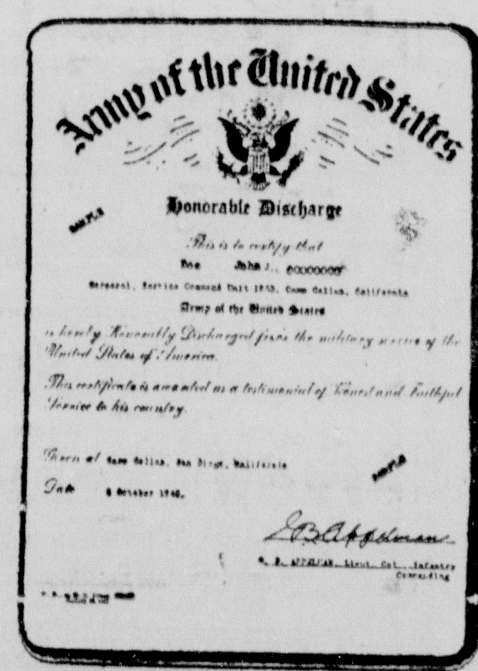 Army of the United States
Honorable Discharge
SAMPLE
This is to certify that
Doe John J., 00000000
Sergeant, Service Command Unit 19 Camp Callan, California
Army of the United States
is hereby Honorably Discharged from the military service of the
United States of America.
This certificate is awarded as a testimonial of Honest and Faithful
Service to his country.
Given at Camp Callan, San Diego, California
SAMPLE
Date October
Lieut. Col., Infantry
Commanding